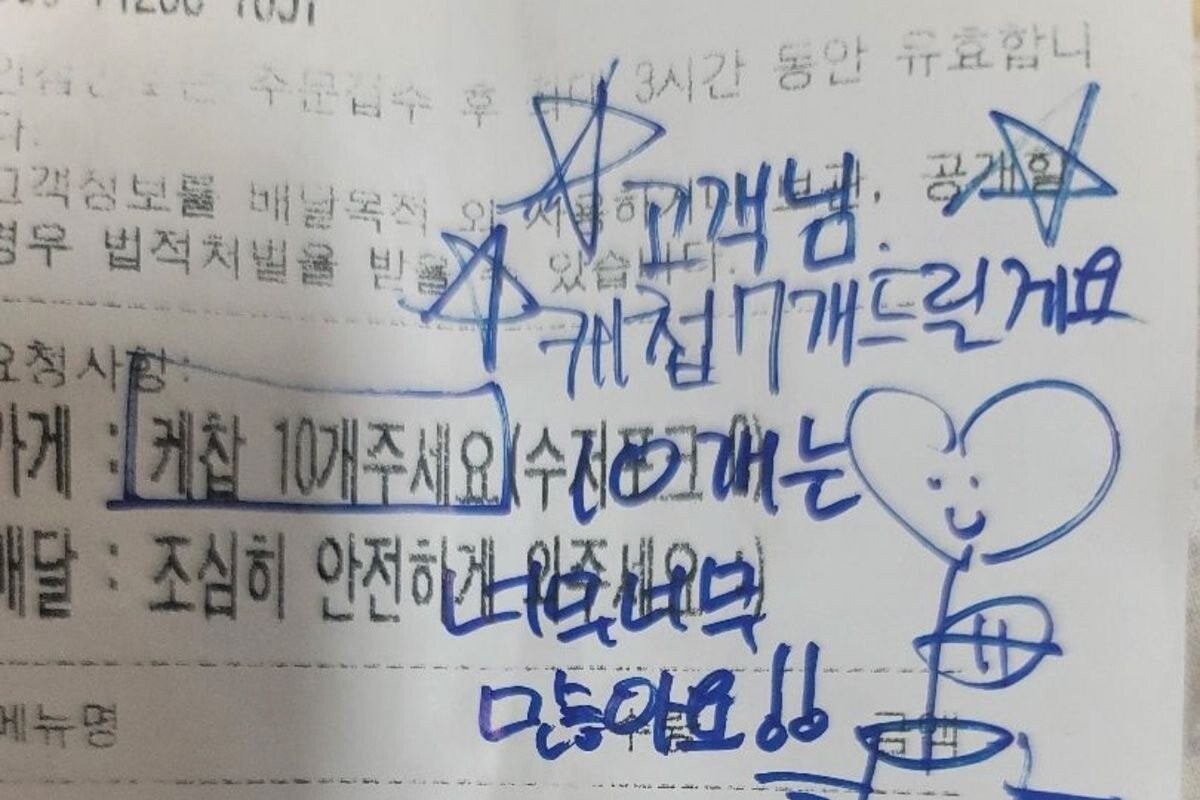 주문접수 후 최대 3시간 동안 유효합니
다.
고객정보를 배달목적 외 사용하거나 보관, 공개할
경우 법적처벌을 받을 수 있습니다.
요청사항:
가게 : 케찹 10개주세요(수저포크
배달 : 조심히 안전하게 와주세요
메뉴명 수량 금액
고객님.
케첩 7개드릴게요
10개는
너무너무
많아요!!